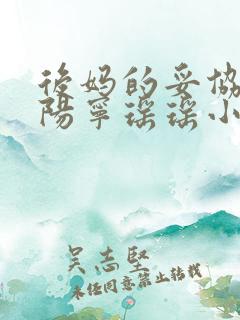 後妈的妥协
陽寧谣谣小
吴志坚
未经同意禁止转载